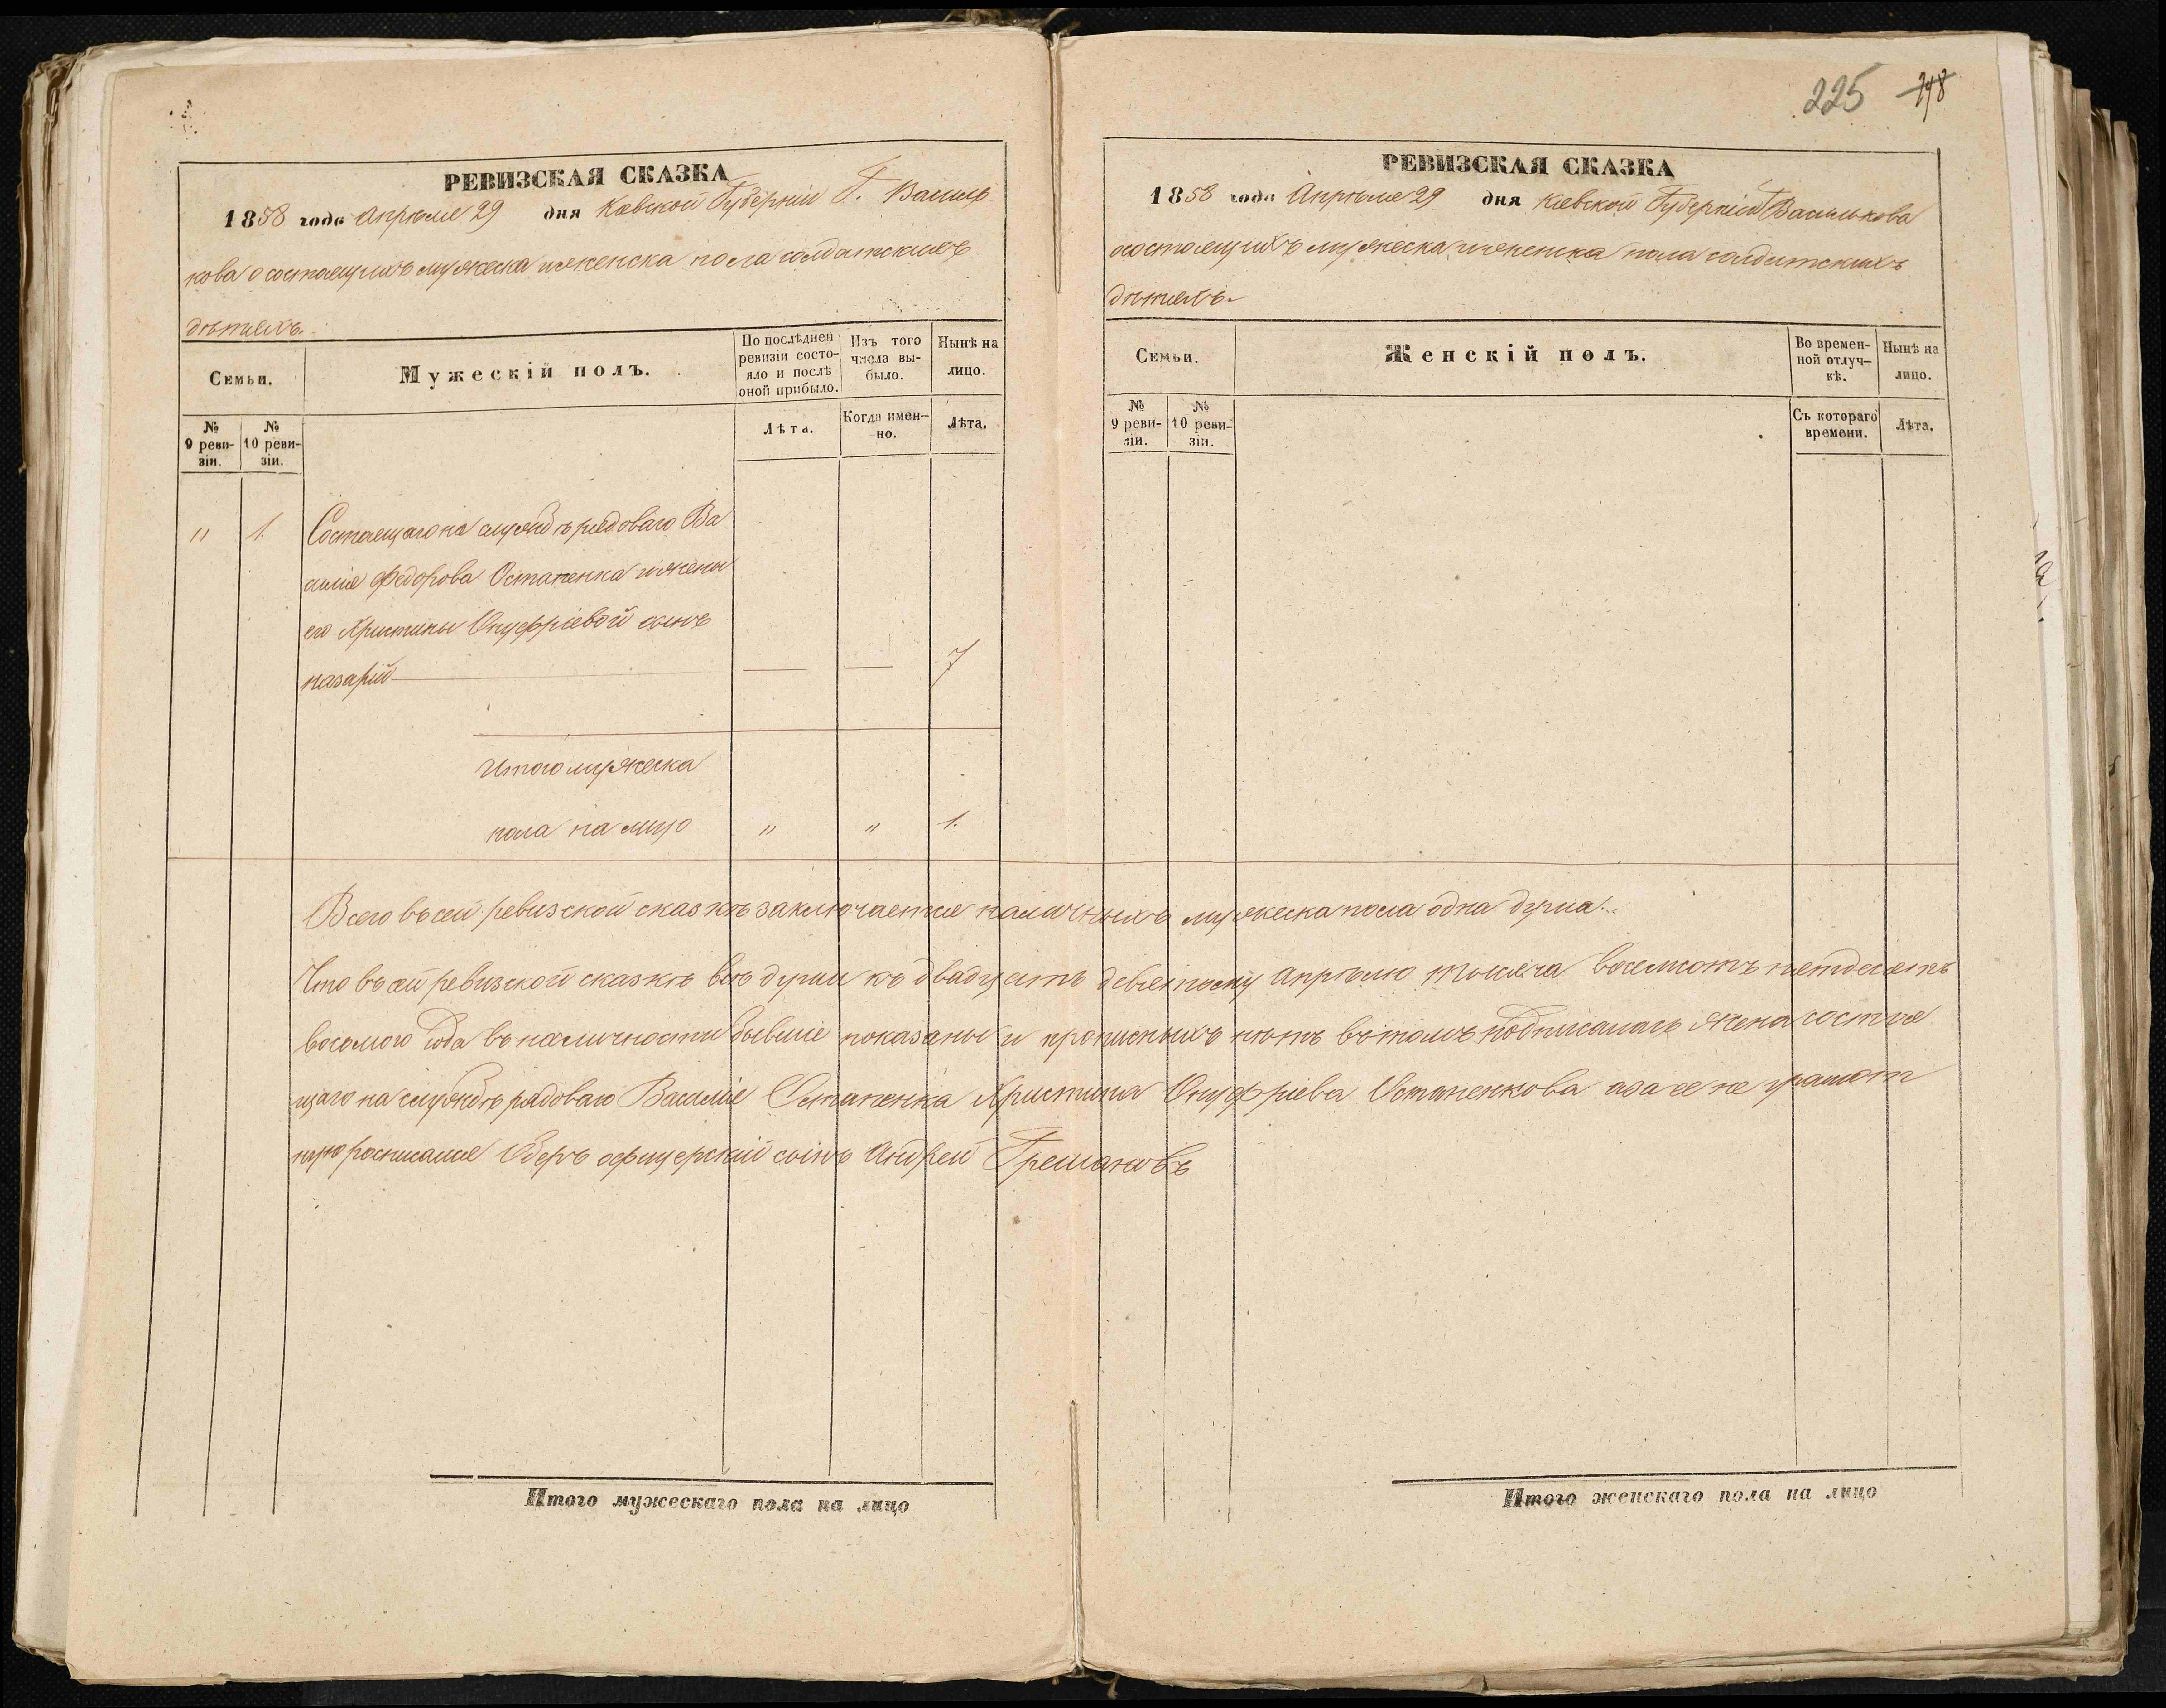 225 748
РЕВИЗСКАЯ СКАЗКА
1858 года Апреля 29 дня Кевской Губерніи Г. Василь
кова о состоящихъ мужеска и женска пола солдатскихъ
дѣтяхъ.
Семьи.
Мужескій полъ.
По послѣдней ревизіи состояло и послѣ оной прибыло.
Изъ того числа выбыло.
Нынѣ на лицо.
№ 9 ревизіи.
№ 10 ревизіи.
Лѣта.
Когда именно.
Лѣта.
" 1. Состоящаго на службѣ рядоваго Ва
силія Федорова Остапенка и жены
его Христины Онуфріевой сынъ
Назарій — — — 7
Итого мужеска
пола на лицо " " 1.
РЕВИЗСКАЯ СКАЗКА
1858 года Апрѣля 29 дня Кіевской Губерніи Василькова
о состоящихъ мужеска и женска пола солдатскихъ
дѣтяхъ.
Семьи.
Женскій полъ.
Во временной отлучкѣ.
Нынѣ на лицо.
№ 9 ревизіи.
№ 10 ревизіи.
Съ котораго времени.
Лѣта.
Всего въ сей ревизской сказкѣ заключается наличныхъ мужеска пола одна душа.
Что въ сей ревизской сказкѣ всѣ души къ двадцать девятому Апрѣлю тысяча восемсотъ пятдесятъ
восомого года въ наличности бывшіе показаны и прописныхъ нѣтъ въ томъ подписалась жена состоя
щаго на службѣ рядоваго Василія Остапенка Христина Онуфріева Остапенкова а за ее не грамот
ную росписался Оберъ офицерскій сынъ Андрей Гремаковъ
Итого мужескаго пола на лицо
Итого женскаго пола на лицо